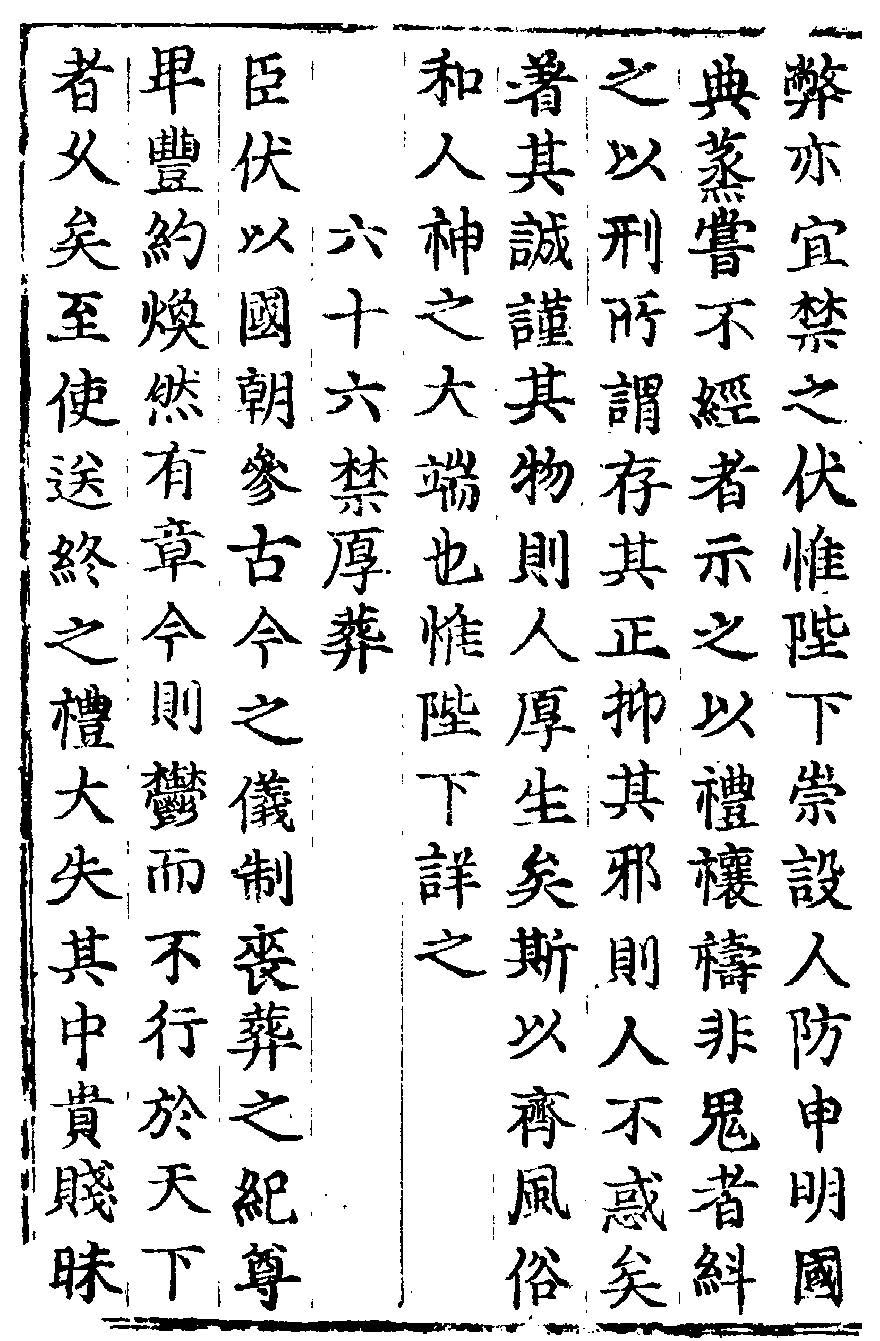 弊亦宜禁之伏惟陛下崇設人防申明國
典蒸嘗不經者示之以禮禳禱非鬼者糾
之以刑所謂存其正抑其邪則人不惑矣
著其誠謹其物則人厚生矣斯以齊風俗
和人神之大端也惟陛下詳之
六十六禁厚葬
臣伏以國朝參古今之儀制喪葬之紀尊
卑豐約煥然有章今則鬱而不行於天下
者久矣至使送終之禮大失其中貴賤昧